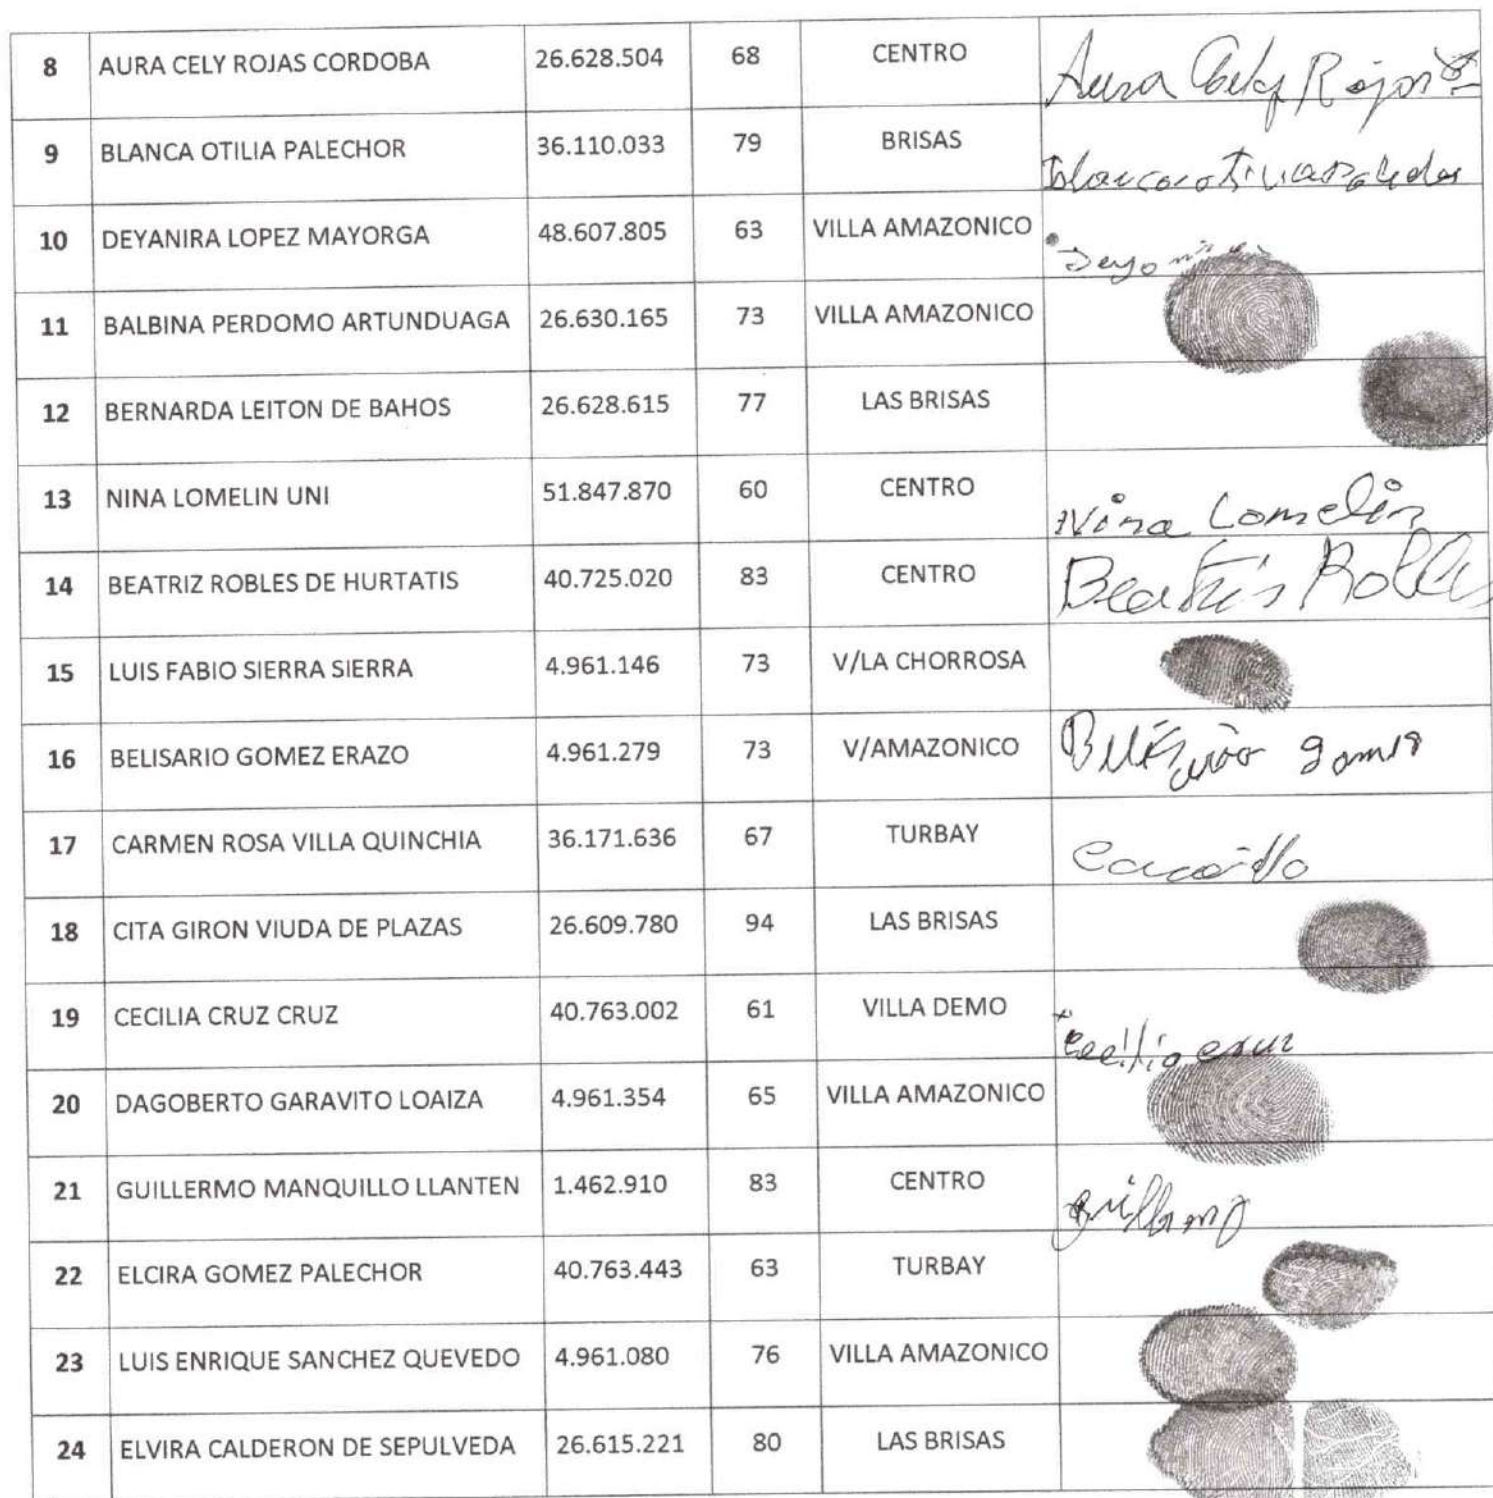 8 AURA CELY ROJAS CORDOBA 26.628.504 68 CENTRO Aura Cely Rojas
9 BLANCA OTILIA PALECHOR 36.110.033 79 BRISAS
10 DEYANIRA LOPEZ MAYORGA 48.607.805 63 VILLA AMAZONICO
11 BALBINA PERDOMO ARTUNDUAGA 26.630.165 73 VILLA AMAZONICO
12 BERNARDA LEITON DE BAHOS 26.628.615 77 LAS BRISAS
13 NINA LOMELIN UNI 51.847.870 60 CENTRO Nina Lomelin
14 BEATRIZ ROBLES DE HURTATIS 40.725.020 83 CENTRO Beatris Robles
15 LUIS FABIO SIERRA SIERRA 4.961.146 73 V/LA CHORROSA
16 BELISARIO GOMEZ ERAZO 4.961.279 73 V/AMAZONICO
17 CARMEN ROSA VILLA QUINCHIA 36.171.636 67 TURBAY
18 CITA GIRON VIUDA DE PLAZAS 26.609.780 94 LAS BRISAS
19 CECILIA CRUZ CRUZ 40.763.002 61 VILLA DEMO
20 DAGOBERTO GARAVITO LOAIZA 4.961.354 65 VILLA AMAZONICO
21 GUILLERMO MANQUILLO LLANTEN 1.462.910 83 CENTRO
22 ELCIRA GOMEZ PALECHOR 40.763.443 63 TURBAY
23 LUIS ENRIQUE SANCHEZ QUEVEDO 4.961.080 76 VILLA AMAZONICO
24 ELVIRA CALDERON DE SEPULVEDA 26.615.221 80 LAS BRISAS